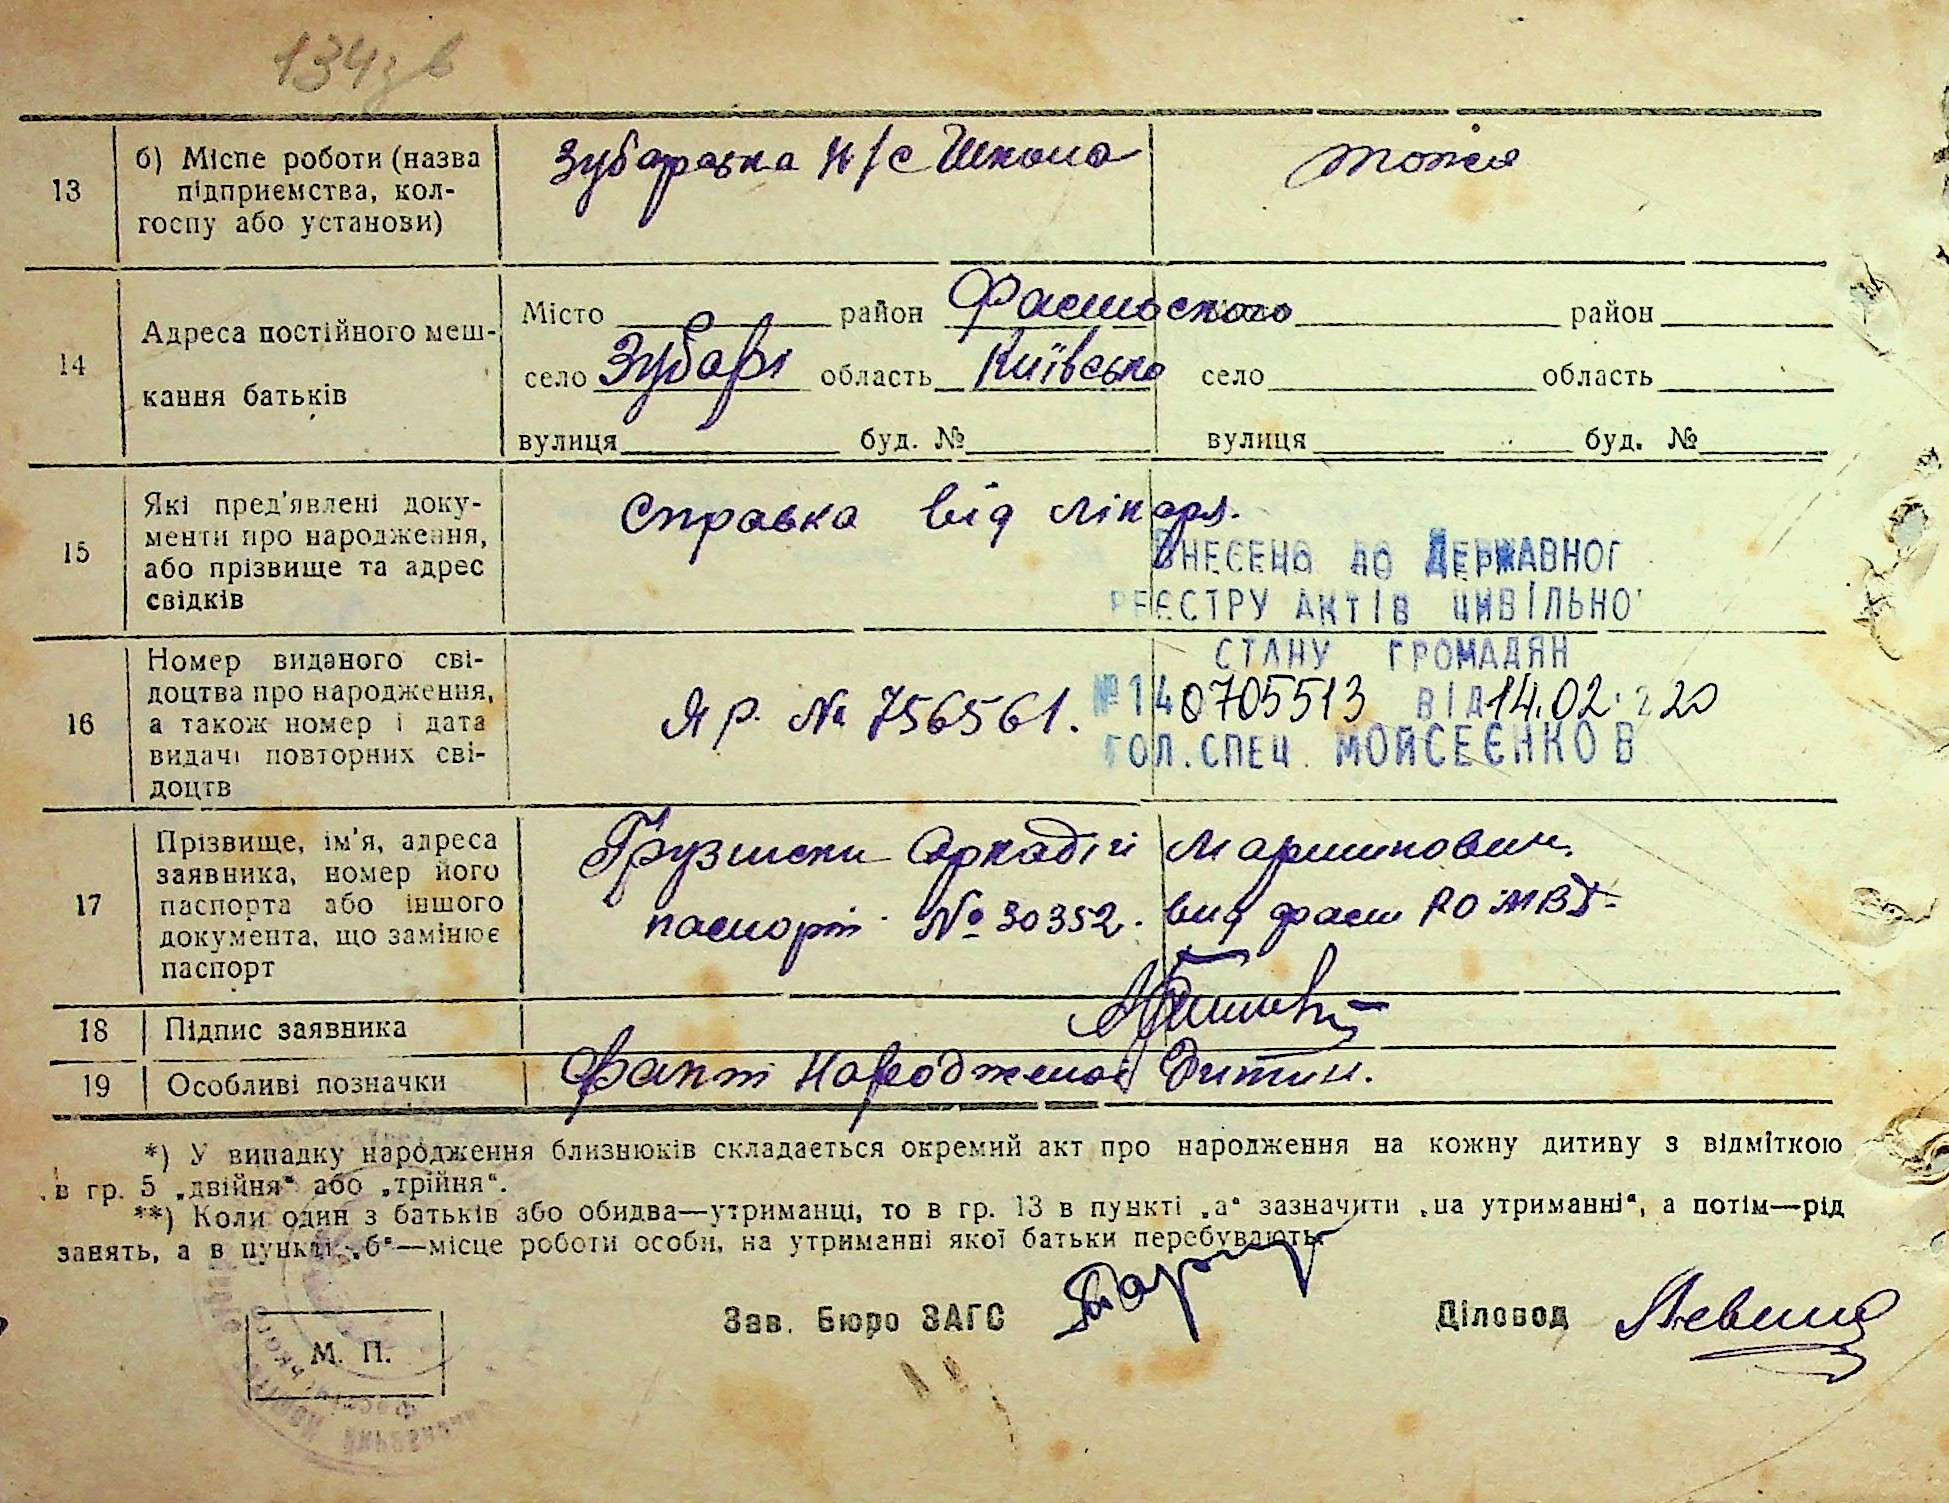 134 зв
13 б) Місце роботи (назва підприємства, колгоспу або установи)
Зубарська н/с Школа
тоже
14 Адреса постійного мешкання батьків
Місто район Фастовского район
село Зубарі область Київська село область
вулиця буд. № вулиця буд. №
15 Які пред'явлені документи про народження, або прізвище та адрес свідків
Справка від лікаря.
ВНЕСЕНО ДО ДЕРЖАВНОГ
РЕЄСТРУ АКТІВ ЦИВІЛЬНО
СТАНУ ГРОМАДЯН
№ 140705513 ВІД 14.02.2020
ГОЛ. СПЕЦ. МОЙСЕЄНКО В
16 Номер виданого свідоцтва про народження, а також номер і дата видачі повторних свідоцтв
ЯР. № 7565561.
17 Прізвище, ім'я, адреса заявника, номер його паспорта або іншого документа, що замінює паспорт
Аркадій
паспорт № 30352. вид фаст РО МВД
18 Підпис заявника
19 Особливі позначки
Факт Народженої Дитин.
*) У випадку народження близнюків складається окремий акт про народження на кожну дитину з відміткою
в гр. 5 „двійня“ або „трійня“.
**) Коли один з батьків або обидва—утриманці, то в гр. 13 в пункті „а“ зазначити „на утриманні“, а потім—рід
занять, а в пункті „б“—місце роботи особи, на утриманні якої батьки перебувають.
Зав. Бюро ЗАГС
Діловод
М. П.